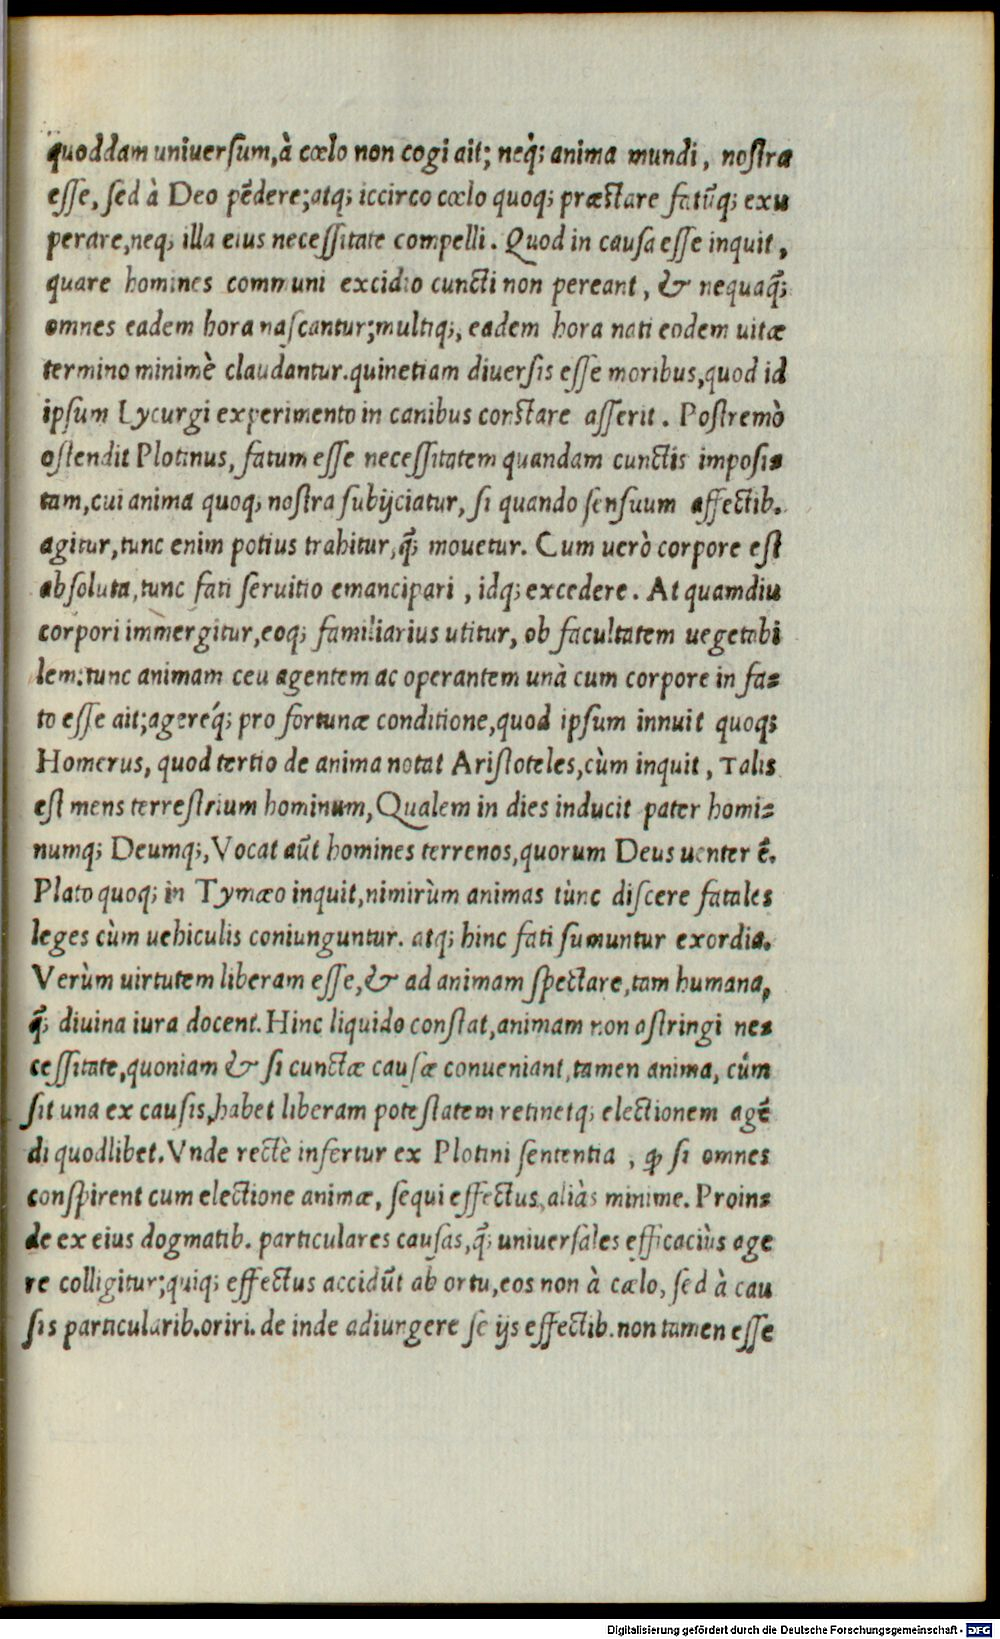 quoddam uniuersum, à cœlo non cogi ait; neq́; anima mundi, nostra
esse, sed à Deo pēdere; atq; iccirco cœlo quoq; præstare fatūq; exu
perare, neq; illa eius necessitate compelli. Quod in causa esse inquit,
quare homines communi excidio cuncti non pereant, & nequaq̃;
omnes eadem hora nascantur; multiq;, eadem hora nati eodem uitæ
termino minimè claudantur. quinetiam diuersis esse moribus, quod id
ipsum Lycurgi experimento in canibus constare asserit. Postremò
ostendit Plotinus, fatum esse necessitatem quandam cunctis imposi=
tam, cui anima quoq; nostra subijciatur, si quando sensuum affectib.
agitur, tunc enim potius trahitur, q̃; mouetur. Cum uerò corpore est
absoluta, tunc fati seruitio emancipari, idq; excedere. At quamdiu
corpori immergitur, eoq; familiarius utitur, ob facultatem uegetabi
lem: tunc animam ceu agentem ac operantem unà cum corpore in fa=
to esse ait; agereq́; pro fortunæ conditione, quod ipsum innuit quoq;
Homerus, quod tertio de anima notat Aristoteles, cùm inquit, Talis
est mens terrestrium hominum, Qualem in dies inducit pater homi=
numq; Deumq;, Vocat aūt homines terrenos, quorum Deus uenter ē.
Plato quoq; in Tymæo inquit, nimirùm animas tùnc discere fatales
leges cùm uehiculis coniunguntur. atq; hinc fati sumuntur exordia.
Verùm uirtutem liberam esse, & ad animam spectare, tam humana,
q̃; diuina iura docent. Hinc liquido constat, animam non astringi ne=
cessitate, quoniam & si cunctæ causæ conueniant, tamen anima, cùm
sit una ex causis, habet liberam potestatem retinetq; electionem agē
di quodlibet. Vnde rectè infertur ex Plotini sententia, ꝙ si omnes
conspirent cum electione animæ, sequi effectus, aliàs minime. Proin=
de ex eius dogmatib. particulares causas, q̃; uniuersales efficaciùs age
re colligitur; quiq; effectus accidūt ab ortu, eos non à cælo, sed à cau
sis particularib. oriri. de inde adiungere se ijs effectib. non tamen esse
Digitalisierung gefördert durch die Deutsche Forschungsgemeinschaft - DFG